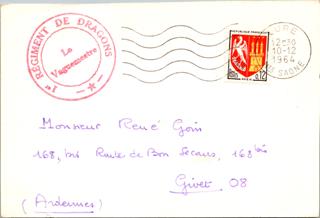 1er RÉGIMENT DE DRAGONS
Le
Vaguemestre
REPUBLIQUE FRANÇAISE
0,12
LURE
12H30
10-12
1964
Hte SAONE
Monsieur René Goin
168, bis Route de Bon Secours, 168 bis
Givet 08
(Ardennes)